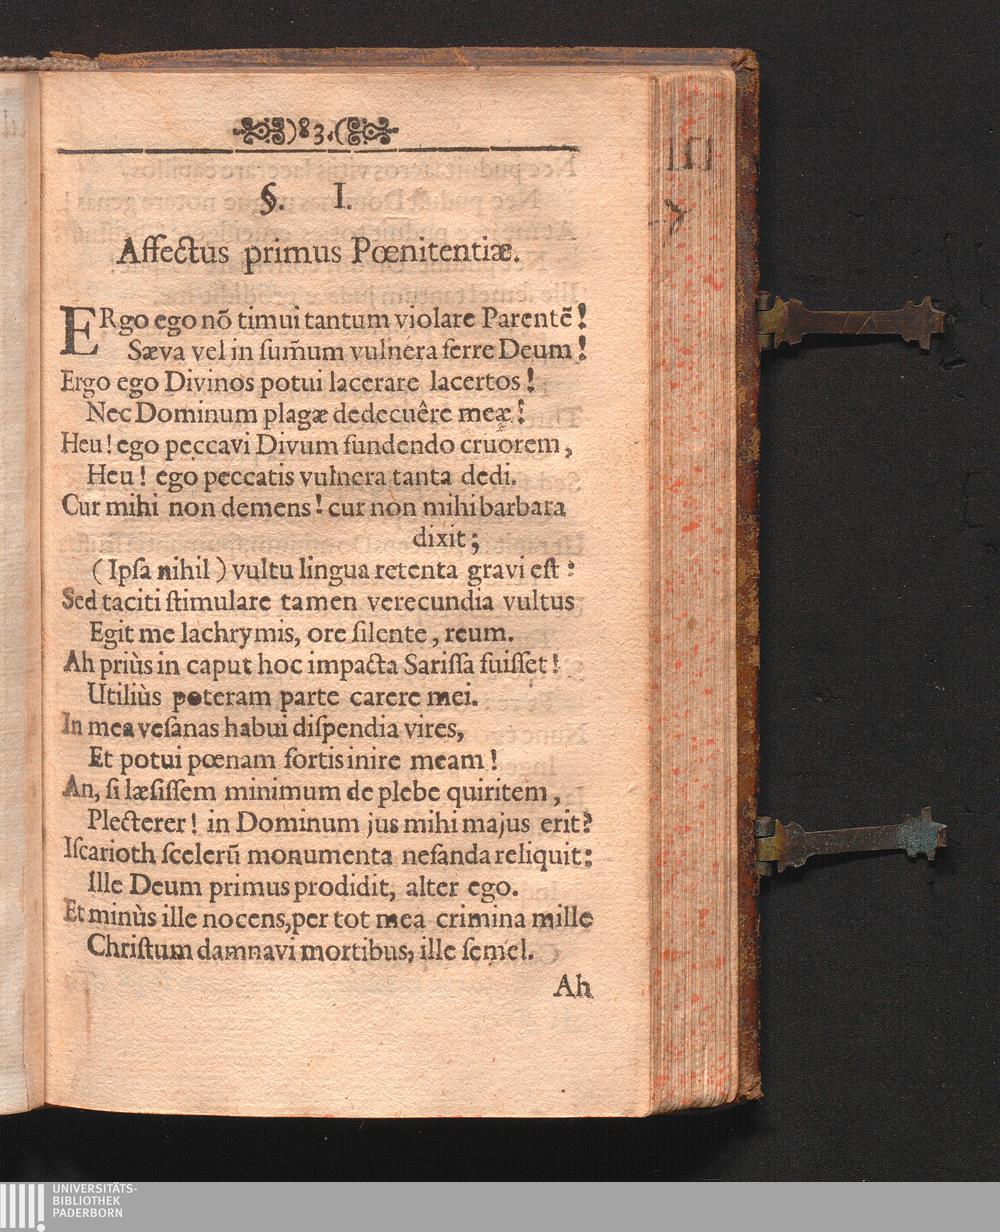 )83.(
§. I.
Affectus primus Pœnitentiæ.
ERgo ego nõ timui tantum violare Parentẽ!
Sæva vel in sum̃um vulnera ferre Deum!
Ergo ego Divinos potui lacerare lacertos!
Nec Dominum plagæ dedecuêre meæ!
Heu! ego peccavi Divum fundendo cruorem,
Heu! ego peccatis vulnera tanta dedi.
Cur mihi non demens! cur non mihi barbara
dixit;
(Ipſa nihil) vultu lingua retenta gravi eſt?
Sed taciti ſtimulare tamen verecundia vultus
Egit me lachrymis, ore ſilente, reum.
Ah priùs in caput hoc impacta Sariſſa fuiſſet!
Utiliùs poteram parte carere mei.
In mea veſanas habui diſpendia vires,
Et potui pœnam fortis inire meam!
An, ſi læſiſſem minimum de plebe quiritem,
Plecterer! in Dominum jus mihi majus erit?
Iſcarioth ſcelerũ monumenta nefanda reliquit:
Ille Deum primus prodidit, alter ego.
Et minùs ille nocens, per tot mea crimina mille
Chriſtum damnavi mortibus, ille ſemel.
Ah
UNIVERSITÄTS-
BIBLIOTHEK
PADERBORN